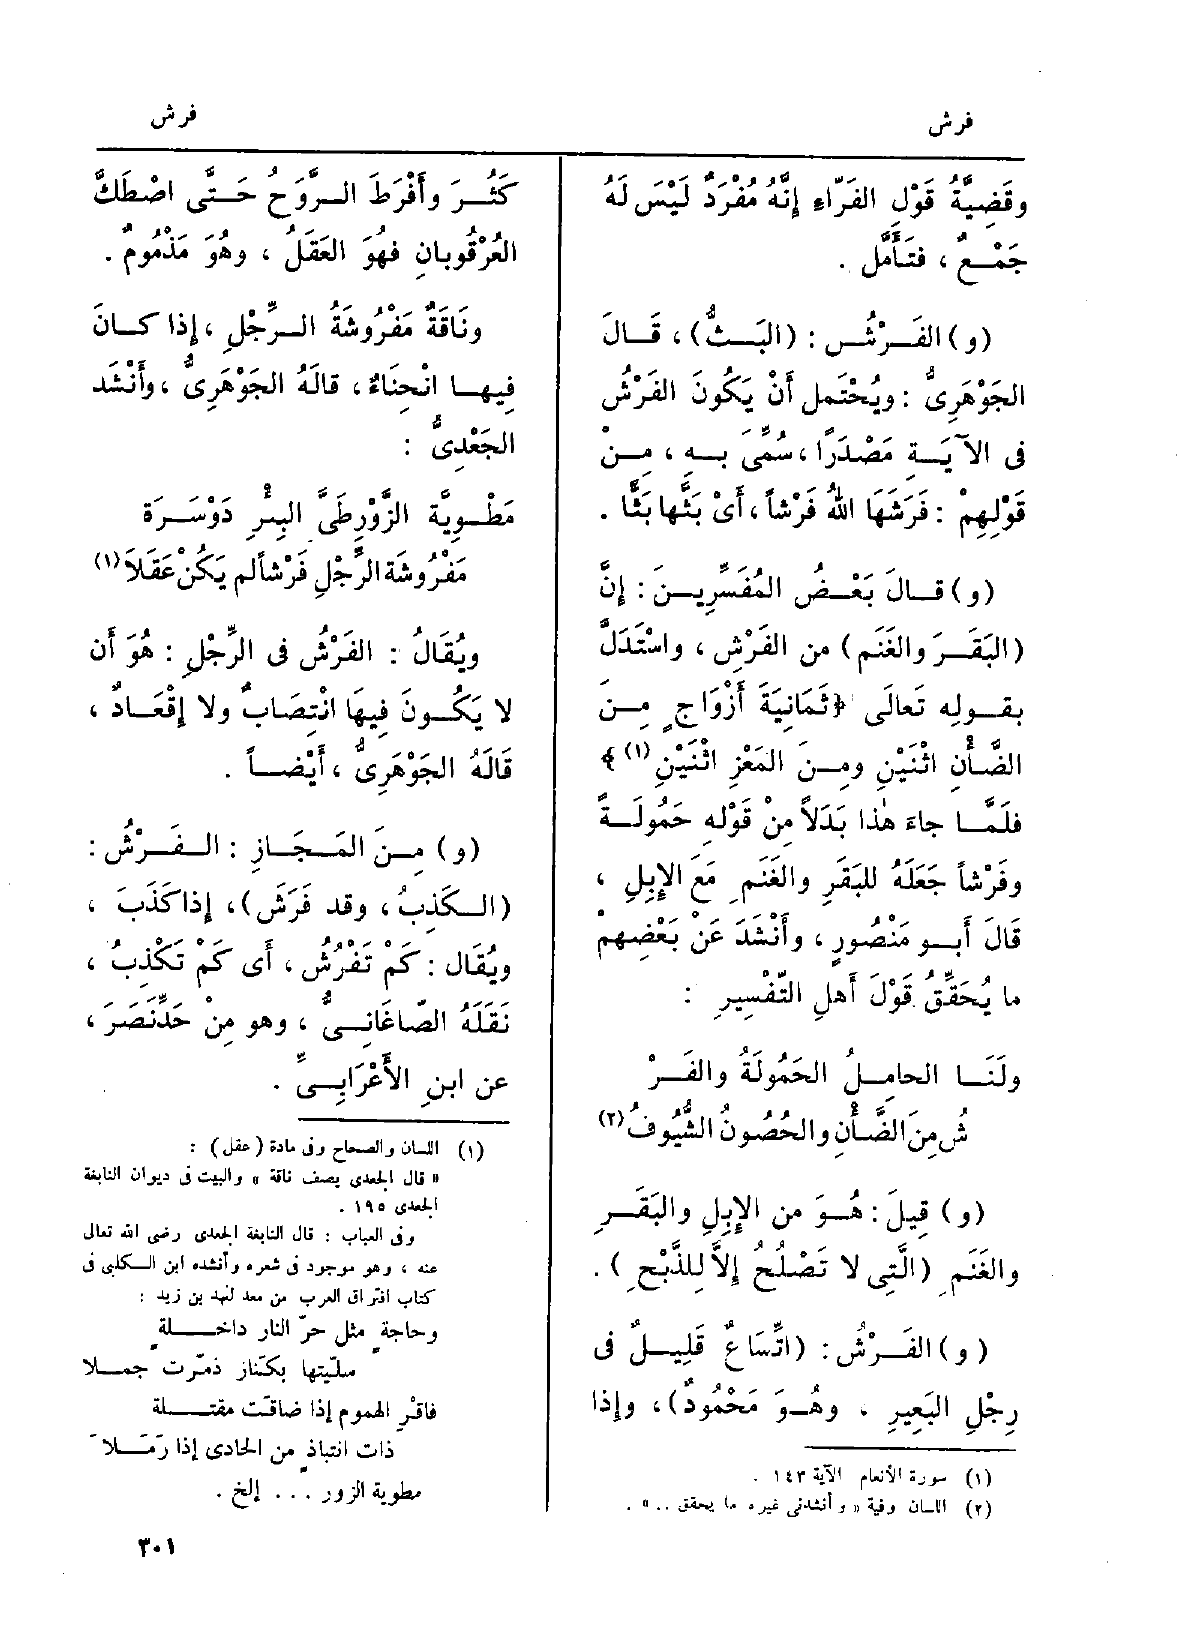 فرش
فرش
وقَضِيَّةُ قَوْلِ الفَرّاءِ إِنَّهُ مُفْرَدٌ لَيْسَ لَهُ
جَمْعٌ ، فتَأَمَّل .
(و) الفَرْشُ : (البَثُّ) ، قَالَ
الجَوْهَرِىُّ : ويُحْتَمل أَنْ يَكُونَ الفَرْشُ
فى الآيَةِ مَصْدَرًا ، سُمِّىَ بِهِ ، مِنْ
قَوْلِهِمْ : فَرَشَهَا اللهُ فَرْشاً ، أَىْ بَثَّها بَثًّا .
(و) قالَ بَعْضُ المُفَسِّرِينَ : إِنَّ
(البَقَرَ والغَنَم) من الفَرْشِ ، واسْتَدَلَّ
بقوله تَعالَى ﴿ثَمَانِيَةَ أَزْوَاجٍ مِنَ
الضَّأْنِ اثْنَيْنِ ومِنَ المَعْزِ اثْنَيْنِ (١)﴾
فلَمَّا جاءَ هٰذا بَدَلاً مِنْ قَوْلِه حَمُولَةً
وفَرْشاً جَعَلَهُ للبَقَرِ والغَنَمِ مَعَ الإِبِلِ ،
قَالَ أَبو مَنْصُورٍ ، وأَنْشَدَ عَنْ بَعْضِهِمْ
ما يُحَقِّقُ قَوْلَ أَهلِ التَّفْسِيرِ :
ولَنَا الحامِلُ الحَمُولَةُ والفَرْ
شُ مِنَ الضَّأْنِ والحُصُونُ الشُّيُوفُ (٢)
(و) قِيلَ : هُوَ من الإِبِلِ والبَقَرِ
والغَنَمِ (الَّتِى لا تَصْلُحُ إِلاَّ لِلذَّبْحِ) .
(و) الفَرْشُ : (اتِّسَاعٌ قَلِيلٌ فى
رِجْلِ البَعِيرِ ، وهُوَ مَحْمُودٌ) ، وإِذا
(١) سورة الأنعام الآية ١٤٣ .
(٢) اللسان وفيه « وأنشدنى غيره ما يحقق .. » .
كَثُرَ وأَفْرَطَ الرَّوَحُ حَتَّى اصْطَكَّ
العُرْقُوبانِ فهُوَ العَقَلُ ، وهُوَ مَذْمُومٌ .
ونَاقَةٌ مَفْرُوشَةُ الرِّجْلِ ، إِذا كانَ
فِيها انْحِنَاءٌ ، قالَهُ الجَوْهَرِىُّ ، وأَنْشَد
الجَعْدِىُّ :
مَطْوِيَّةِ الزَّوْرِ طَىَّ البِئْرِ دَوْسَرَة
مَفْرُوشَةِ الرِّجْلِ فَرْشاً لم يَكُنْ عَقَلاَ (١)
ويُقَالُ : الفَرْشُ فى الرِّجْلِ : هُوَ أَن
لا يَكُونَ فِيهَا انْتِصَابٌ ولا إِقْعَادٌ ،
قَالَهُ الجَوْهَرِىُّ ، أَيْضاً .
(و) مِنَ المَجَازِ : الفَرْشُ :
(الكَذِبُ ، وقد فَرَشَ) ، إِذا كَذَبَ ،
ويُقَال : كَمْ تَفْرُش ، أَى كَمْ تَكْذِبُ ،
نَقَلَهُ الصّاغَانِىُّ ، وهو مِنْ حَدِّ نَصَرَ ،
عن ابنِ الأَعْرَابِىِّ .
(١) اللسان والصحاح وفى مادة (عقل) :
« قال الجعدى يصف ناقة » والبيت فى ديوان النابغة
الجعدى ١٩٥ .
وفى العباب : قال النابغة الجعدى رضى الله تعالى
عنه ، وهو موجود فى شعره وأنشده ابن الكلبى فى
كتاب افتراق العرب من معد لنهد بن زيد :
وحاجةٍ مثل حرّ النار داخلةٍ
سلّيتها بكناز ذمّرت جملا
فاقْرِ الهموم إذا ضاقَت مقتلة
ذات انتباذٍ من الحادى إذا رَمَلاَ
مطوية الزور ... إلخ .
٣٠١